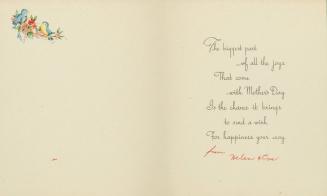 The biggest part
of all the joys
That come
with Mother's Day
Is the chance it brings
to send a wish
For happiness your way.
from
Helen &